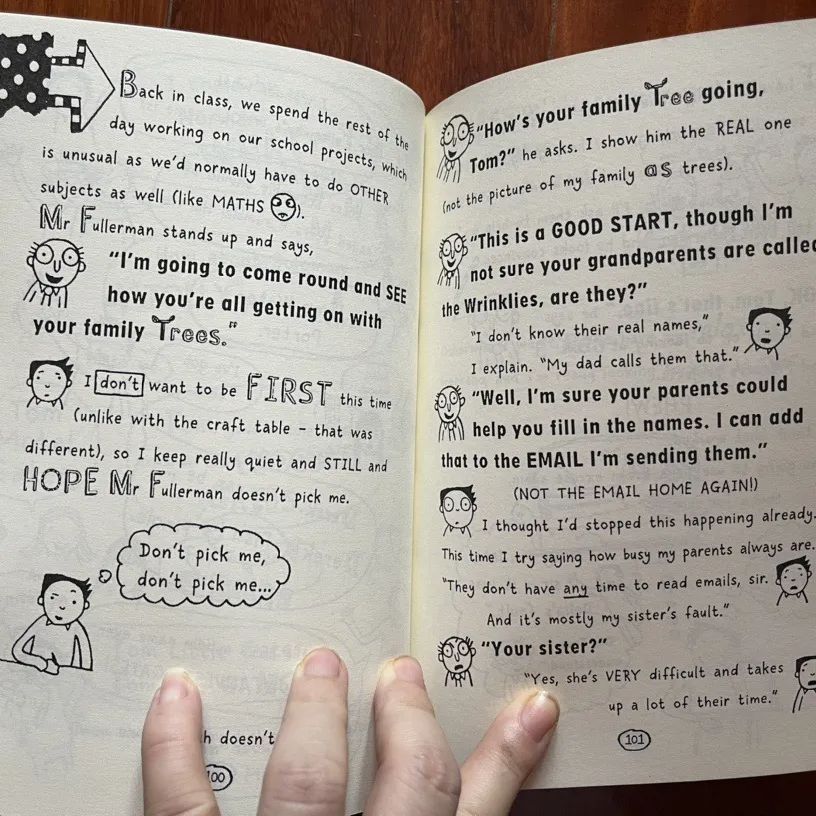 Back in class, we spend the rest of the
day working on our school projects, which
is unusual as we'd normally have to do OTHER
subjects as well (like MATHS ).
Mr Fullerman stands up and says,
"I'm going to come round and SEE
how you're all getting on with
your family Trees."
I don't want to be FIRST this time
(unlike with the craft table - that was
different), so I keep really quiet and STILL and
HOPE Mr Fullerman doesn't pick me.
Don't pick me,
don't pick me...
doesn't
"How's your family Tree going,
Tom?" he asks. I show him the REAL one
(not the picture of my family as trees).
"This is a GOOD START, though I'm
not sure your grandparents are called
the Wrinklies, are they?"
"I don't know their real names,"
I explain. "My dad calls them that."
"Well, I'm sure your parents could
help you fill in the names. I can add
that to the EMAIL I'm sending them."
(NOT THE EMAIL HOME AGAIN!)
I thought I'd stopped this happening already.
This time I try saying how busy my parents always are.
"They don't have any time to read emails, sir.
And it's mostly my sister's fault."
"Your sister?"
"Yes, she's VERY difficult and takes
up a lot of their time."
101